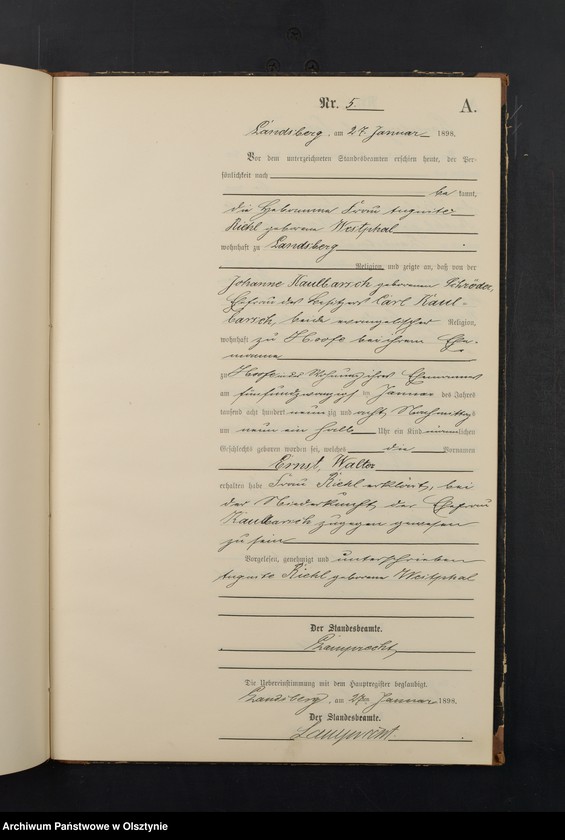 Nr. 5. A.
Landsberg, am 27. Januar 1898.
Vor dem unterzeichneten Standesbeamten erschien heute, der Per-
sönlichkeit nach
be kannt,
die Hebamme Frau Auguste
Riehl geborene Westphal
wohnhaft zu Landsberg
Religion, und zeigte an, daß von der
Johanne Kaulbarsch geborenen Schröder,
Ehefrau des Besitzers Carl Kaul-
barsch, beide evangelischer Religion,
wohnhaft zu Hoofe bei ihrem Ehe-
manne
zu Hoofe in der Wohnung ihres Ehemannes
am fünfundzwanzigsten Januar des Jahres
tausend acht hundert neunzig und acht, Nachmittags
um neun ein halb Uhr ein Kind männlichen
Geschlechts geboren worden sei, welches die Vornamen
Ernst, Walter
erhalten habe Frau Riehl erklärt, bei
der Niederkunft der Ehefrau
Kaulbarsch zugegen gewesen
zu sein
Vorgelesen, genehmigt und unterschrieben
Auguste Riehl geborene Westphal
Der Standesbeamte.
Lamprecht
Die Uebereinstimmung mit dem Hauptregister beglaubigt.
Landsberg, am 27. Januar 1898.
Der Standesbeamte.
Lamprecht.
Archiwum Państwowe w Olsztynie